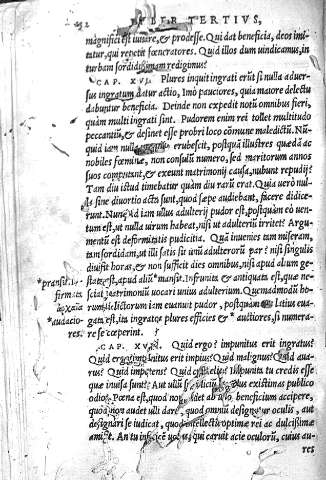 252 LIBER TERTIVS,
magnifici est iuuare, & prodesse. Qui dat beneficia, deos imi-
tatur, qui repetit fœneratores. Quid illos dum uindicamus, in
turbam sordidissimam redigimus?
CAP. XVI. Plures inquit ingrati erūt si nulla aduer-
sus ingratum datur actio, imò pauciores, quia maiore delectu
dabuntur beneficia. Deinde non expedit notū omnibus fieri,
quàm multi ingrati sint. Pudorem enim rei tollet multitudo
peccantiū, & desinet esse probri loco cōmune maledictū. Nū-
quid iam nulla erubescit, postquā illustres quædā ac
nobiles fœminæ, non consulū numero, sed maritorum annos
suos computant, & exeunt matrimonij causa, nubunt repudij?
Tam diu istud timebatur quàm diu rarū erat. Quia uerò nul-
la sine diuortio acta sunt, quod sæpe audiebant, facere didice-
runt. Nunquid iam ullus adulterij pudor est, postquàm eò uen-
tum est, ut nulla uirum habeat, nisi ut adulterū irritet? Argu-
mentū est deformitatis pudicitia. Quā inuenies tam miseram,
tam sordidam, ut illi satis sit unū adulterorū par? nisi singulis
diuisit horas, & non sufficit dies omnibus, nisi apud alium ge-
state est, apud aliū* mansit. Infrunita & antiqua est, quæ ne-
sciat matrimoniū uocari unius adulterium. Quemadmodū ho-
rum delictorum iam euanuit pudor, postquàm res latius eua-
gata est, ita ingratos plures efficies & * auctiores, si numera-
re se cœperint.
*pransit. In-
firmata
*audacio-
res.
CAP. XVII. Quid ergo? impunitus erit ingratus?
Quid ergo impunitus erit impius? Quid malignus? Quid aua-
rus? Quid impotens? Quid crudelis? Impunita tu credis esse
quæ inuisa sunt? Aut ullū supplicium grauius existimas publico
odio? Pœna est, quod non audet ab ullo beneficium accipere,
quod non audet ulli dare, quod omniū designatur oculis, aut
designari se iudicat, quod intellectū optimæ rei ac dulcissimæ
amisit. An tu infelicem uocas, qui caruit acie oculorū, cuius au-
res